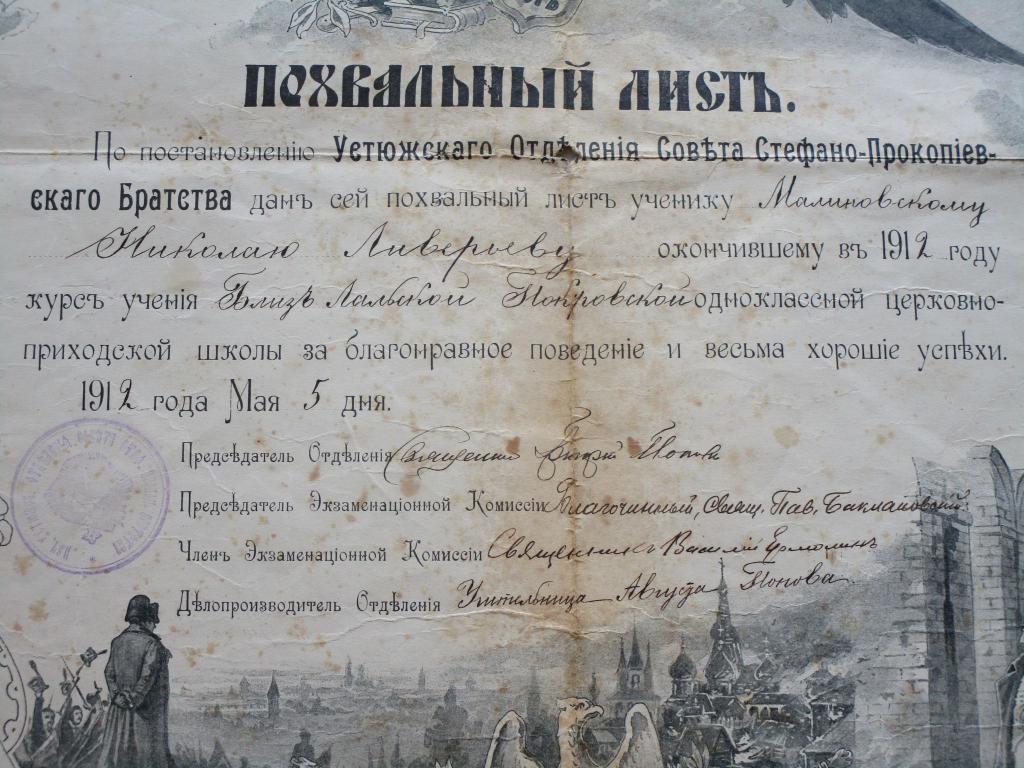 ПОХВАЛЬНЫЙ ЛИСТЪ.
По постановленію Устюжскаго Отдѣленія Совѣта Стефано-Прокопіев-
скаго Братства данъ сей похвальный листъ ученику Малиновскому
Николаю Ливерьеву окончившему въ 1912 году
курсъ ученія Близъ Лальской Покровской одноклассной церковно-
приходской школы за благонравное поведеніе и весьма хорошіе успѣхи.
1912 года Мая 5 дня.
Предсѣдатель Отдѣленія Священник Поповъ
Предсѣдатель Экзаменаціонной Комиссіи Благочинный, Свящ. Пав. Баклановскій.
Членъ Экзаменаціонной Комиссіи Священникъ Василій Ермолинъ
Дѣлопроизводитель Отдѣленія Учительница Августа Попова.